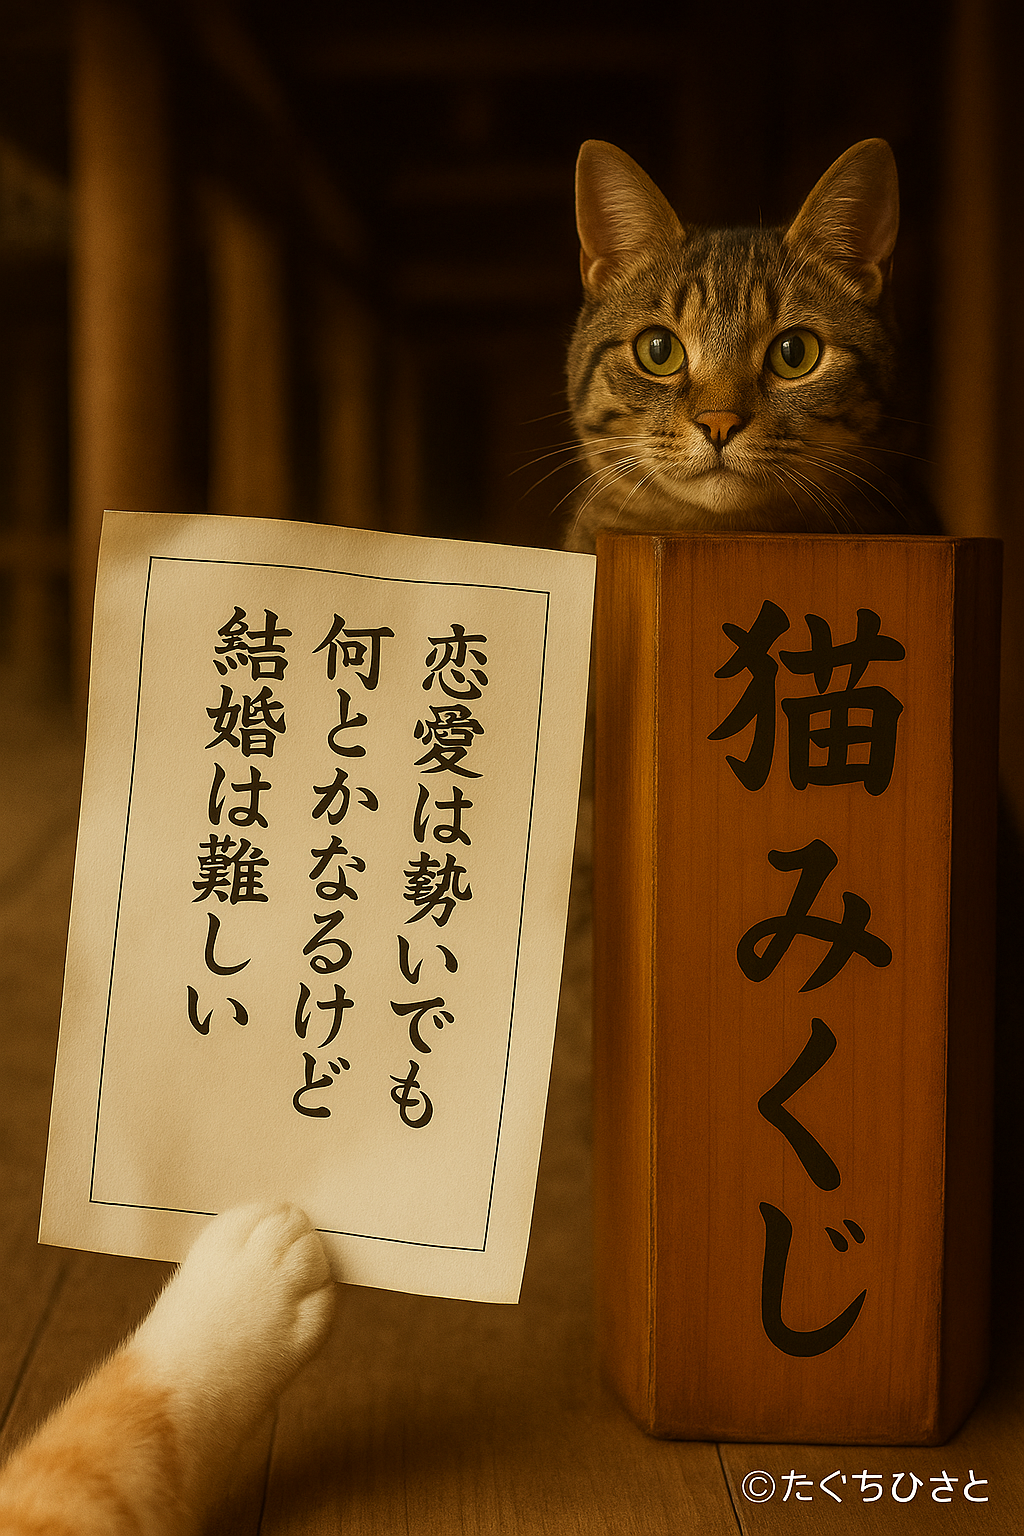 恋愛は勢いでも
何とかなるけど
結婚は難しい
猫みくじ
©たぐちひさと